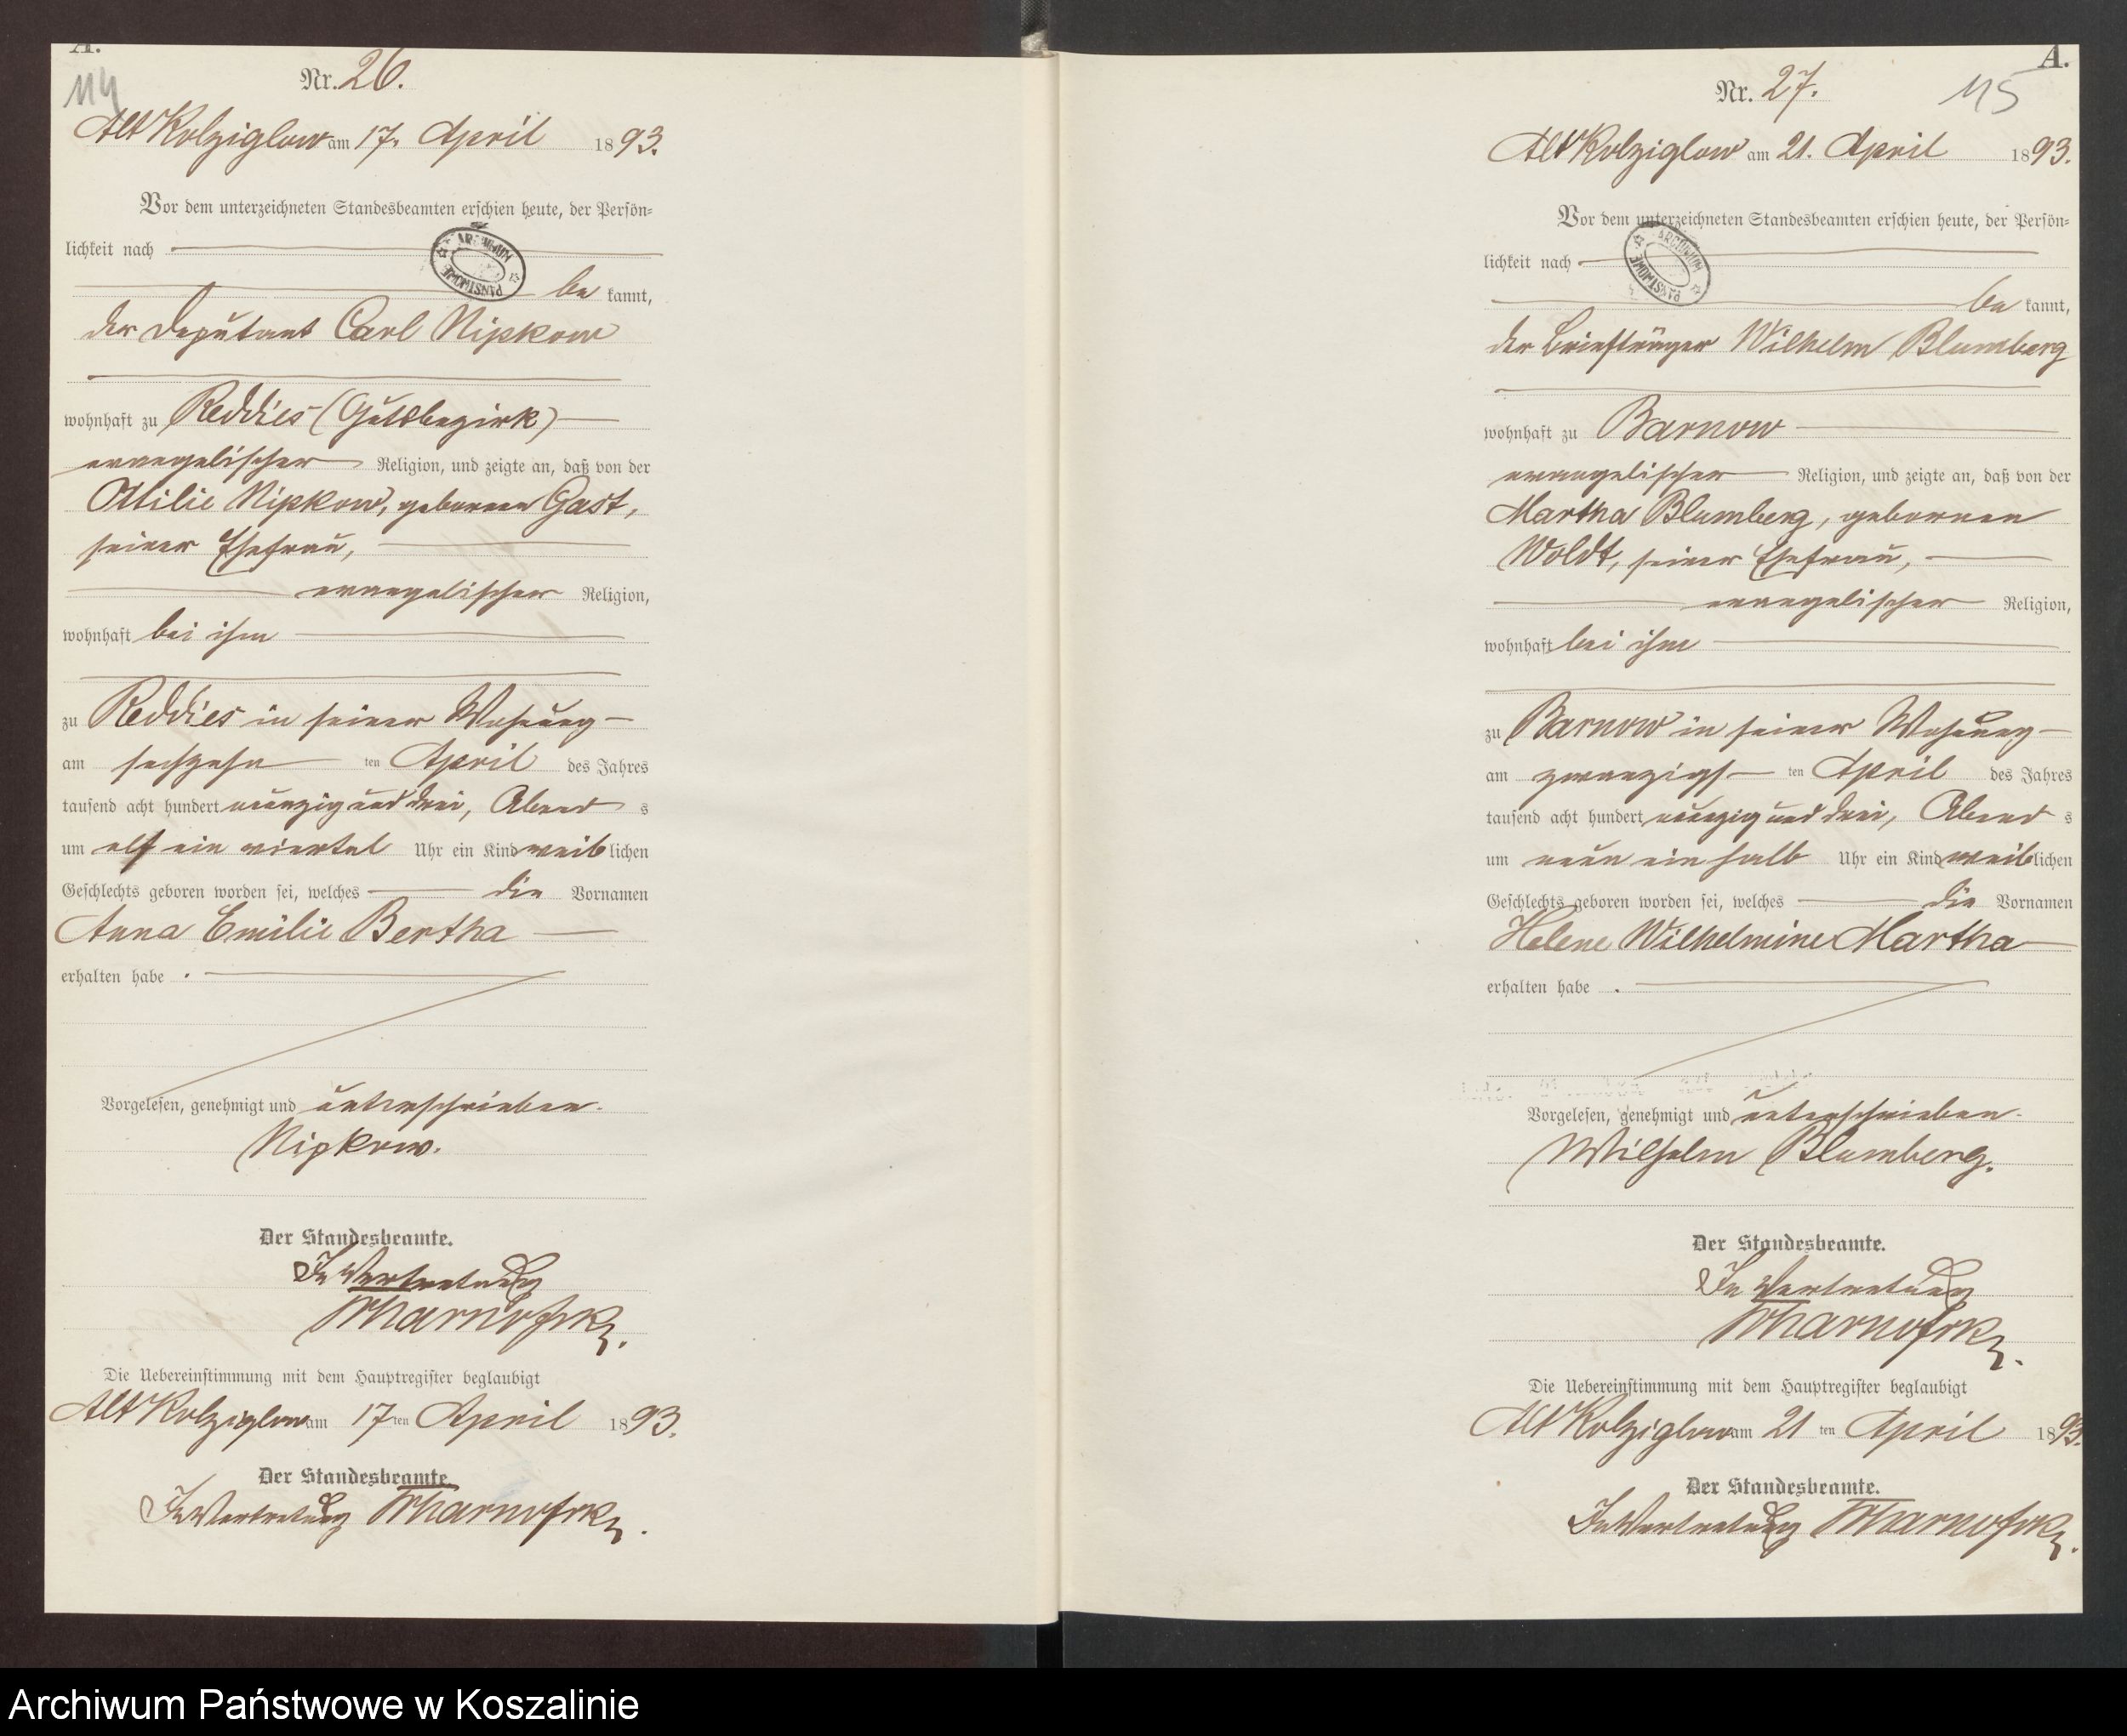 A.
114
Nr. 26.
Alt Kolziglow am 17. April 1893.
Vor dem unterzeichneten Standesbeamten erschien heute, der Persön=
lichkeit nach
ARCHIWUM PAŃSTWOWE
be kannt,
der Deputant Carl Nipkow
wohnhaft zu Reddies (Gutsbezirk)
evangelischer Religion, und zeigte an, daß von der
Ottilie Nipkow, geborenen Gast,
seiner Ehefrau,
evangelischer Religion,
wohnhaft bei ihm
zu Reddies in seiner Wohnung
am sechzehn ten April des Jahres
tausend acht hundert neunzig und drei, Abend s
um elf ein viertel Uhr ein Kind weiblichen
Geschlechts geboren worden sei, welches die Vornamen
Anna Emilie Bertha
erhalten habe .
Vorgelesen, genehmigt und unterschrieben.
Nipkow.
Der Standesbeamte.
In Vertretung
Die Uebereinstimmung mit dem Hauptregister beglaubigt
Alt Kolziglow am 17 ten April 1893.
Der Standesbeamte.
In Vertretung
A.
115
Nr. 27.
Alt Kolziglow am 21. April 1893.
Vor dem unterzeichneten Standesbeamten erschien heute, der Persön=
lichkeit nach
ARCHIWUM PAŃSTWOWE
be kannt,
der Briefträger Wilhelm Blumberg
wohnhaft zu Barnow
evangelischer Religion, und zeigte an, daß von der
Martha Blumberg, gebornen
Woldt, seiner Ehefrau,
evangelischer Religion,
wohnhaft bei ihm
zu Barnow in seiner Wohnung
am zwanzigs ten April des Jahres
tausend acht hundert neunzig und drei, Abend s
um neun ein halb Uhr ein Kind weiblichen
Geschlechts geboren worden sei, welches die Vornamen
Helene Wilhelmine Martha
erhalten habe .
Vorgelesen, genehmigt und unterschrieben.
Wilhelm Blumberg.
Der Standesbeamte.
In Vertretung
Die Uebereinstimmung mit dem Hauptregister beglaubigt
Alt Kolziglow am 21 ten April 1893.
Der Standesbeamte.
In Vertretung
Archiwum Państwowe w Koszalinie